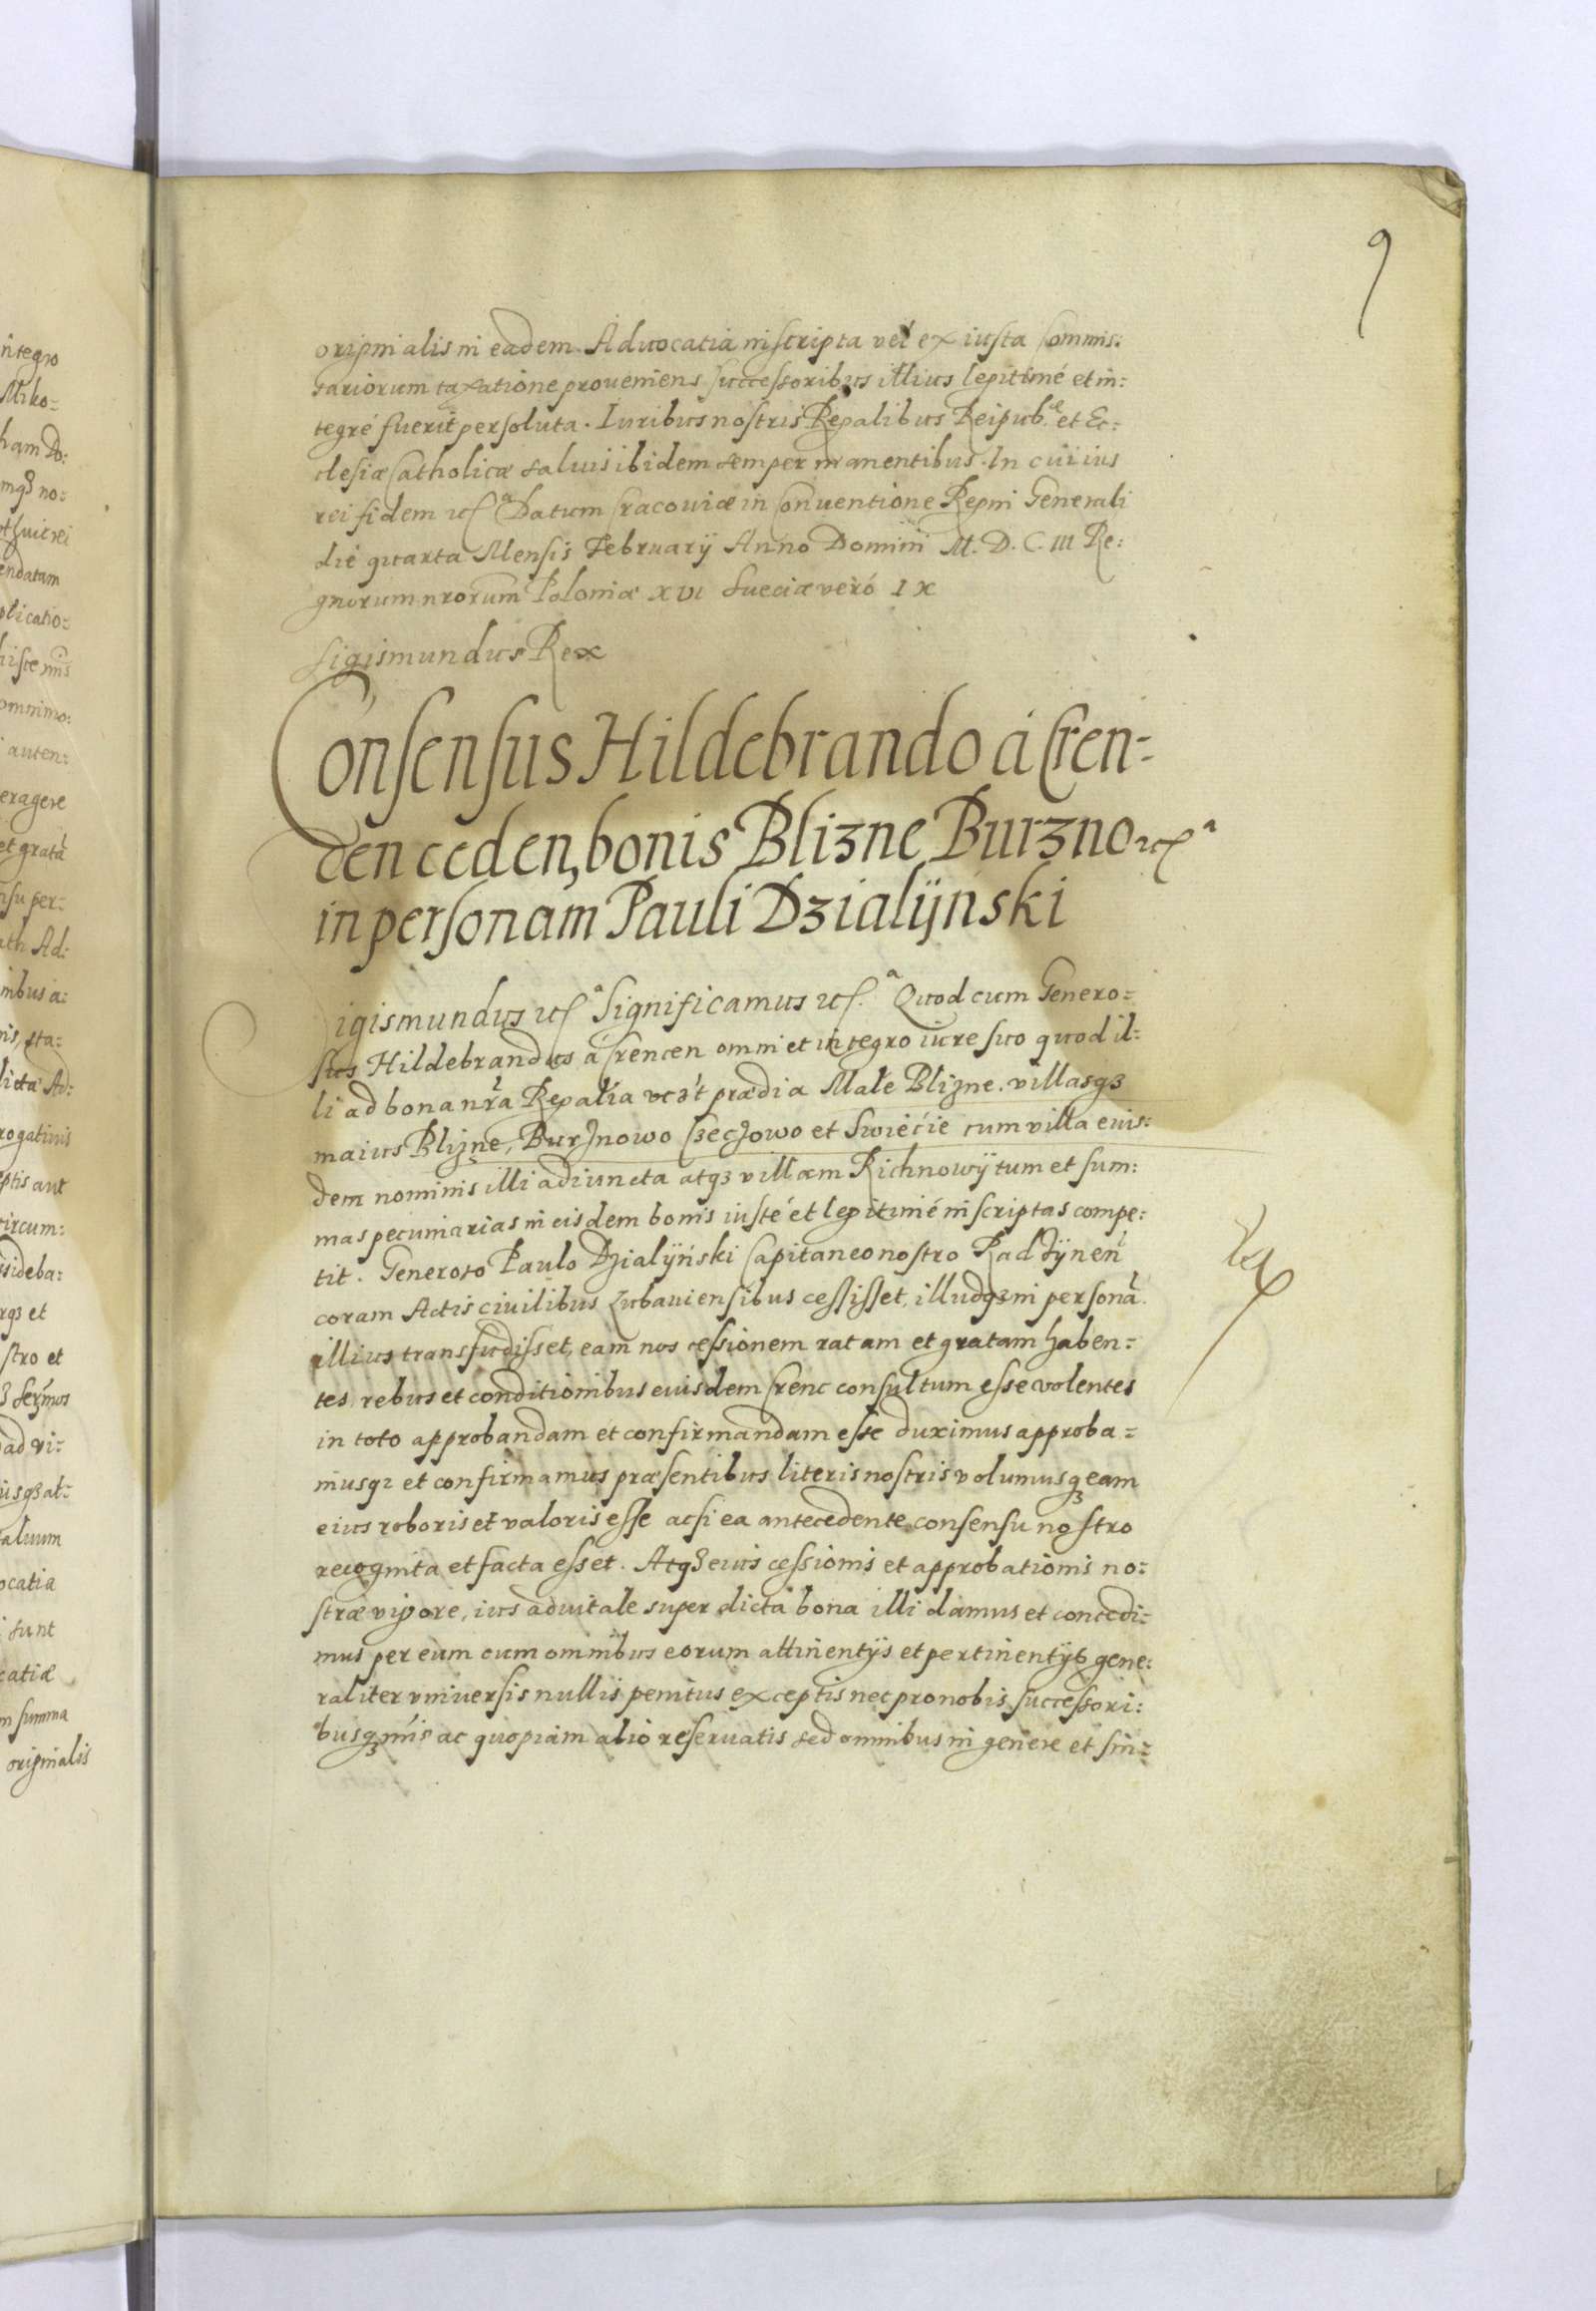 9
originalis in eadem Aduocatia inscripta vel ex iusta Commis:
sariorum taxatione proueniens successoribus illius legitimé et in:
tegré fuerit persoluta. Iuribus nostris Regalibus Reipub:ae et Ec:
clesiæ Catholicæ saluis ibidem semper manentibus. In cuius
rei fidem etc.a Datum Cracouiæ in Conuentione Regni Generali
die quarta Mensis Februarij Anno Domini M. D. C. III Re:
gnorum nrorum Poloniæ XVI Sueciæ veró IX
Sigismundus Rex
Consensus Hildebrando á Cren=
den ceden, bonis Blizne Burzno etc.a
in personam Pauli Dzialÿnski
igismundus etc.a Significamus etc.a Quod cum Genero=
sus Hildebrandus á Crencen omni et integro iure suo quod il:
li ad bona nra Regalia vc3t prædia Małe Blizne. villasq3
maius Blizne, Burznowo Czeczowo et Swiećie cum villa eius:
dem nominis illi adiuncta atq3 villam Richnowÿ tum et sum:
mas pecuniarias in eisdem bonis iusté et legitimé inscriptas compe:
tit. Generoso Paulo Dzialÿński Capitaneo nostro Radzÿnen
coram Actis ciuilibus Lubauiensibus cessisset, illudq3 in personã
illius transfudisset, eam nos cessionem ratam et gratam haben=
tes rebus et conditionibus eiusdem Crenc consultum esse volentes
in toto approbandam et confirmandam esse duximus approba=
musq3 et confirmamus præsentibus literis nostris volumusq3 eam
eius roboris et valoris esse acsi ea antecedente consensu nostro
recognita et facta esset. Atq3 eius cessionis et approbationis no:
stræ vigore, ius aduitale super dicta bona illi damus et concedi=
mus per eum cum omnibus eorum attinentÿs et pertinentÿs gene:
raliter vniuersis nullis penitus exceptis nec pro nobis successori:
busq3 nris ac quopiam alio reseruatis sed omnibus in genere et sin=